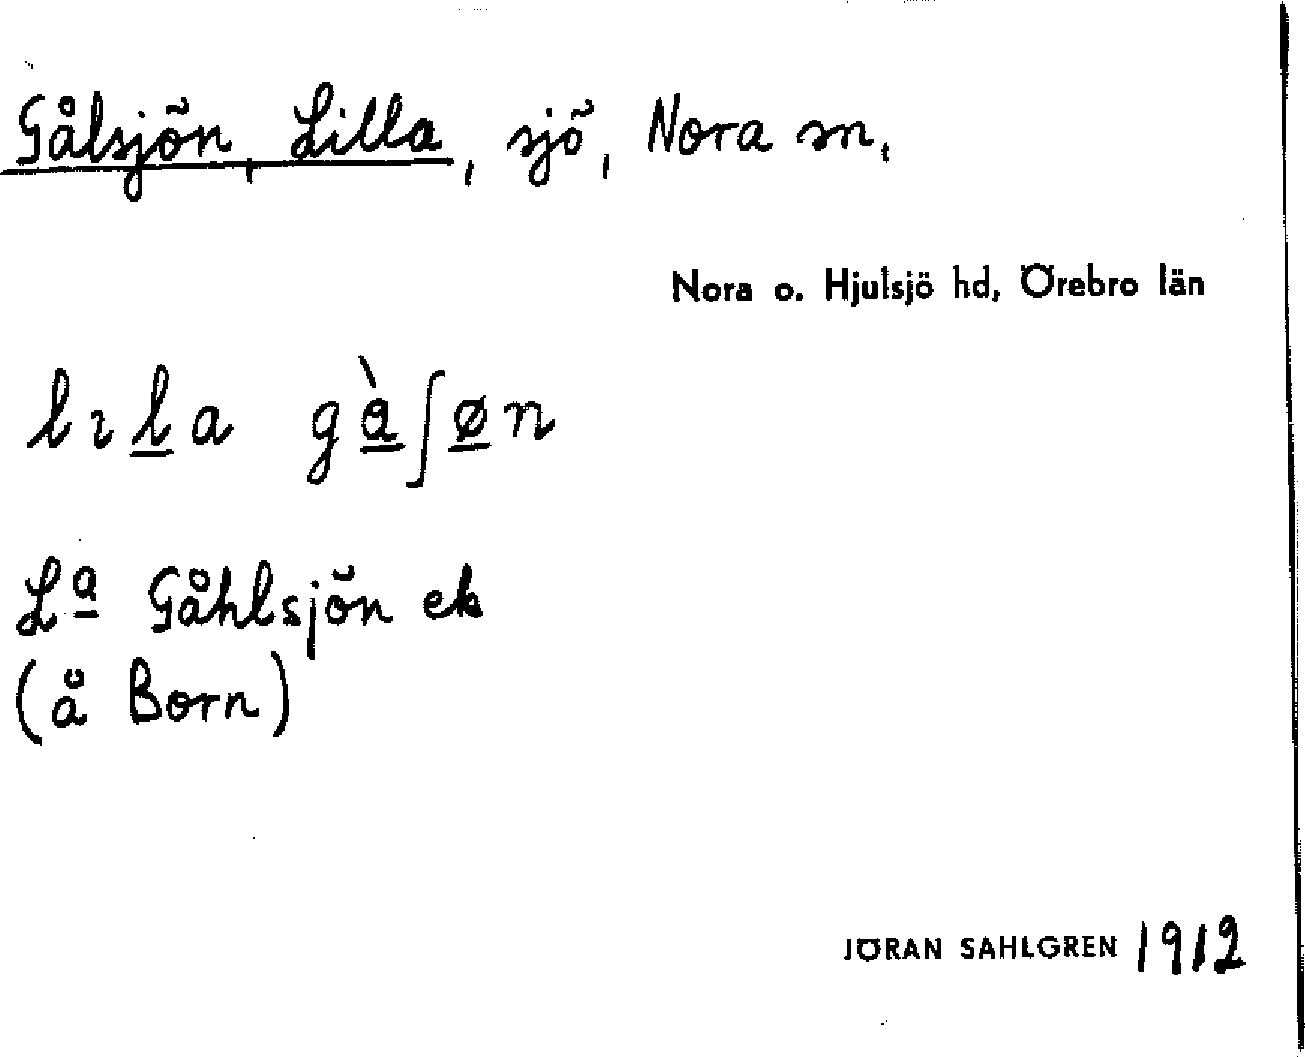 Gålsjön, Lilla, sjö, Nora sn,
Nora o. Hjulsjö hd, Örebro län
lıla gàʃøn
Lª Gåhlsjön ek
(å Born)
JÖRAN SAHLGREN 1912